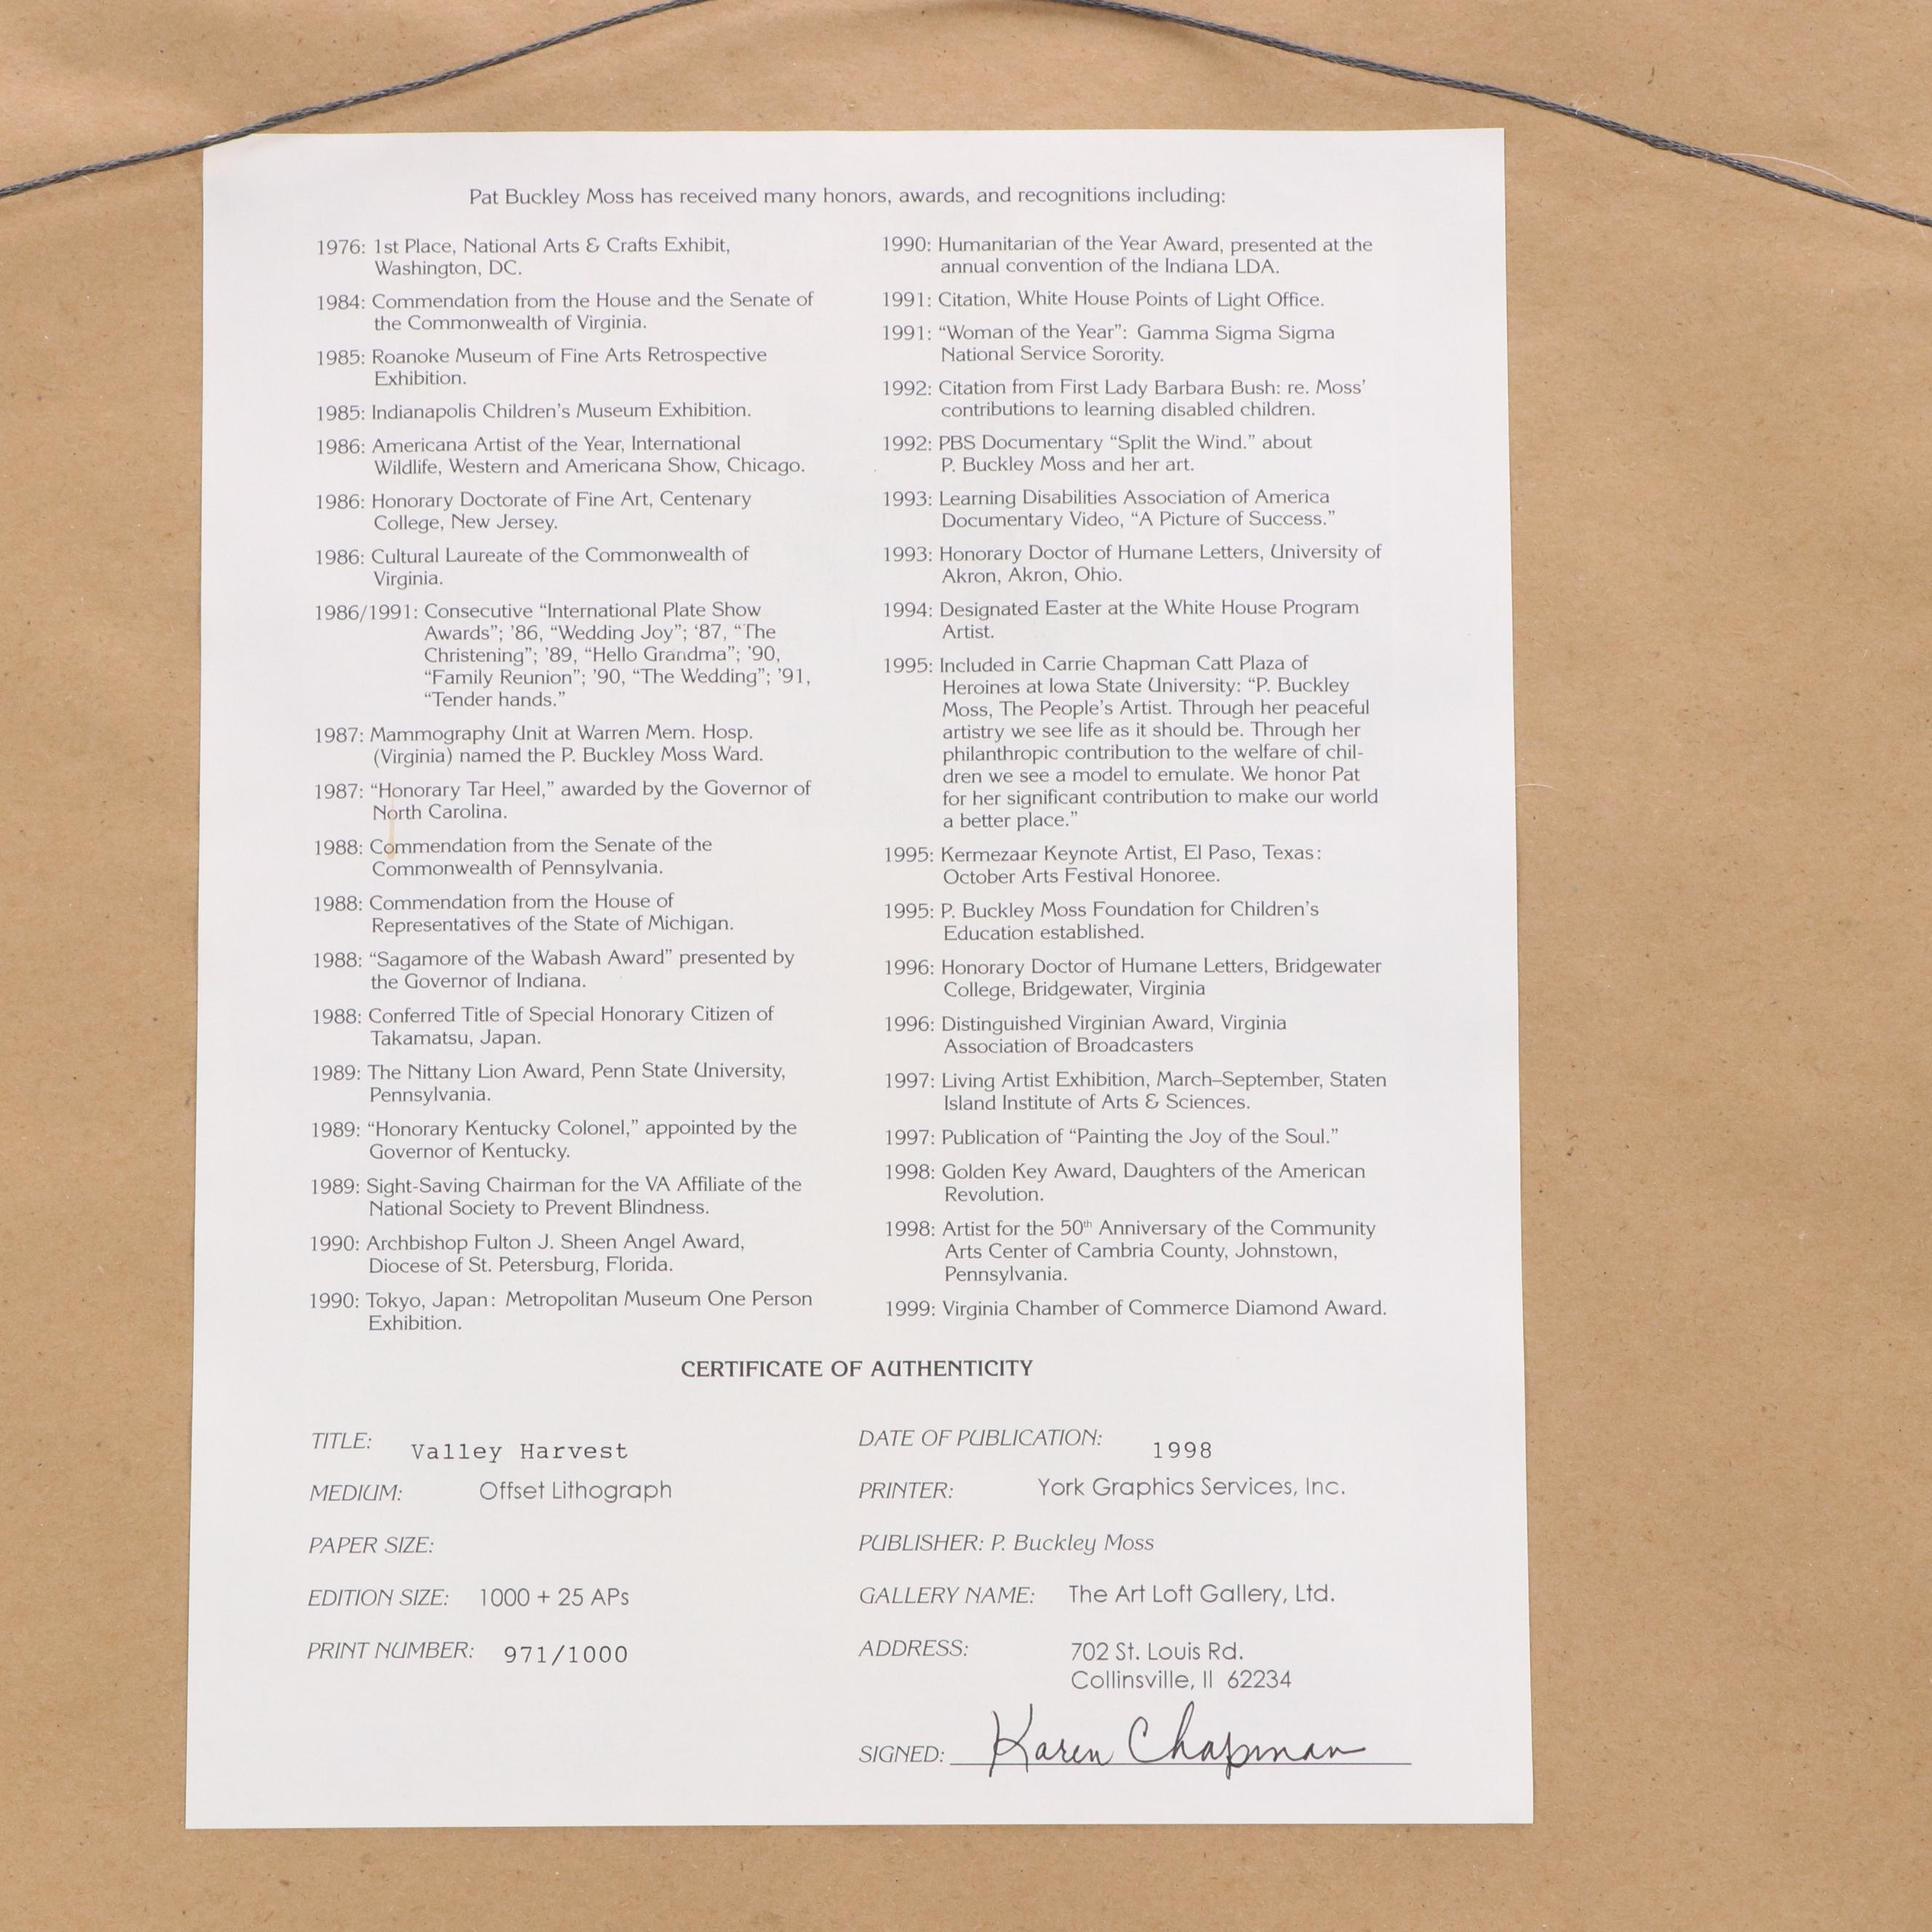 Pat Buckley Moss has received many honors, awards, and recognitions including:
1976: 1st Place, National Arts & Crafts Exhibit,
Washington, DC.
1984: Commendation from the House and the Senate of
the Commonwealth of Virginia.
1985: Roanoke Museum of Fine Arts Retrospective
Exhibition.
1985: Indianapolis Children's Museum Exhibition.
1986: Americana Artist of the Year, International
Wildlife, Western and Americana Show, Chicago.
1986: Honorary Doctorate of Fine Art, Centenary
College, New Jersey.
1986: Cultural Laureate of the Commonwealth of
Virginia.
1986/1991: Consecutive “International Plate Show
Awards”; ’86, “Wedding Joy”; ‘87, “The
Christening”; ’89, “Hello Grandma”; ’90,
“Family Reunion”; ’90, “The Wedding”; ’91,
“Tender hands.”
1987: Mammography Unit at Warren Mem. Hosp.
(Virginia) named the P. Buckley Moss Ward.
1987: “Honorary Tar Heel,” awarded by the Governor of
North Carolina.
1988: Commendation from the Senate of the
Commonwealth of Pennsylvania.
1988: Commendation from the House of
Representatives of the State of Michigan.
1988: “Sagamore of the Wabash Award” presented by
the Governor of Indiana.
1988: Conferred Title of Special Honorary Citizen of
Takamatsu, Japan.
1989: The Nittany Lion Award, Penn State University,
Pennsylvania.
1989: “Honorary Kentucky Colonel,” appointed by the
Governor of Kentucky.
1989: Sight-Saving Chairman for the VA Affiliate of the
National Society to Prevent Blindness.
1990: Archbishop Fulton J. Sheen Angel Award,
Diocese of St. Petersburg, Florida.
1990: Tokyo, Japan: Metropolitan Museum One Person
Exhibition.
1990: Humanitarian of the Year Award, presented at the
annual convention of the Indiana LDA.
1991: Citation, White House Points of Light Office.
1991: “Woman of the Year”: Gamma Sigma Sigma
National Service Sorority.
1992: Citation from First Lady Barbara Bush: re. Moss’
contributions to learning disabled children.
1992: PBS Documentary “Split the Wind.” about
P. Buckley Moss and her art.
1993: Learning Disabilities Association of America
Documentary Video, “A Picture of Success.”
1993: Honorary Doctor of Humane Letters, University of
Akron, Akron, Ohio.
1994: Designated Easter at the White House Program
Artist.
1995: Included in Carrie Chapman Catt Plaza of
Heroines at Iowa State University: “P. Buckley
Moss, The People’s Artist. Through her peaceful
artistry we see life as it should be. Through her
philanthropic contribution to the welfare of chil-
dren we see a model to emulate. We honor Pat
for her significant contribution to make our world
a better place.”
1995: Kermezaar Keynote Artist, El Paso, Texas:
October Arts Festival Honoree.
1995: P. Buckley Moss Foundation for Children’s
Education established.
1996: Honorary Doctor of Humane Letters, Bridgewater
College, Bridgewater, Virginia
1996: Distinguished Virginian Award, Virginia
Association of Broadcasters
1997: Living Artist Exhibition, March–September, Staten
Island Institute of Arts & Sciences.
1997: Publication of “Painting the Joy of the Soul.”
1998: Golden Key Award, Daughters of the American
Revolution.
1998: Artist for the 50th Anniversary of the Community
Arts Center of Cambria County, Johnstown,
Pennsylvania.
1999: Virginia Chamber of Commerce Diamond Award.
CERTIFICATE OF AUTHENTICITY
TITLE: Valley Harvest
MEDIUM: Offset Lithograph
PAPER SIZE:
EDITION SIZE: 1000 + 25 APs
PRINT NUMBER: 971/1000
DATE OF PUBLICATION: 1998
PRINTER: York Graphics Services, Inc.
PUBLISHER: P. Buckley Moss
GALLERY NAME: The Art Loft Gallery, Ltd.
ADDRESS: 702 St. Louis Rd.
Collinsville, Il 62234
SIGNED: Karen Chapman